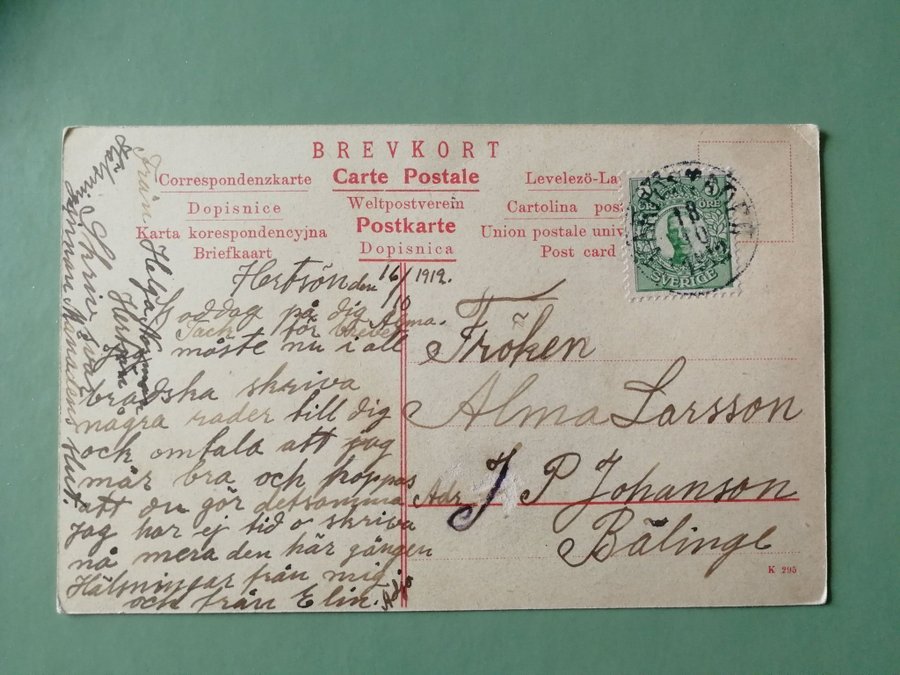 BREVKORT
Correspondenzkarte Carte Postale Levelező-La
Dopisnice Weltpostverein Cartolina pos
Karta korespondencyjna Postkarte Union postale univ
Briefkaart Dopisnica Post card
ÖRE
SVERIGE
18
10
Hertsön den 16/10 1912.
Goddag på dig Alma.
Tack för brevet
Jag måste nu i all
bradska skriva
några rader till dig
ock omtala att jag
mår bra och hoppas
att du gör detsamma
jag har ej tid o skriva
nå mera den här gången
Hälsningar från mig
och från Elin. Adjö
Fröken
Alma Larsson
Adr J P Johanson
Bälinge
K 295
från
Helga
Hertsön
Skriv snart